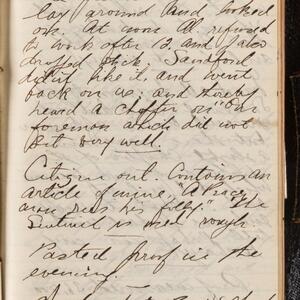 lay around and looked
on. At noon Al refused
to work after 12, and I also
dropped stick. Sandford
didn't like it, and went
back on us; and thereby
heard a chapter on "Our
foreman which did not
set very well.
Citizen out. Contains an
article of mine, "A
his folly." The
is well
Pasted proof in the
evening.